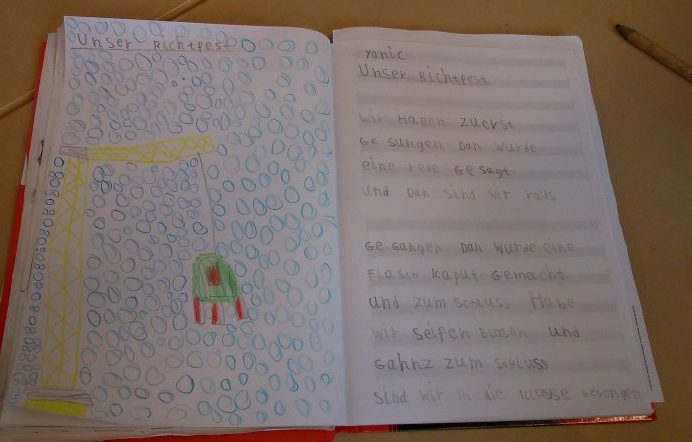 Unser Richtfest
Yanic
Unser Richtfest
Wir Haben zuerst
Ge sungen Dan wurde
eine rede Gesagt
und Dan sind wir raus
Ge Gangen Dan wurde eine
Flasch kaput Gemacht
und zum schluss Habe
wir seifen Blosen und
Gahnz zum schluss
sind wir in die klasse Gegangen